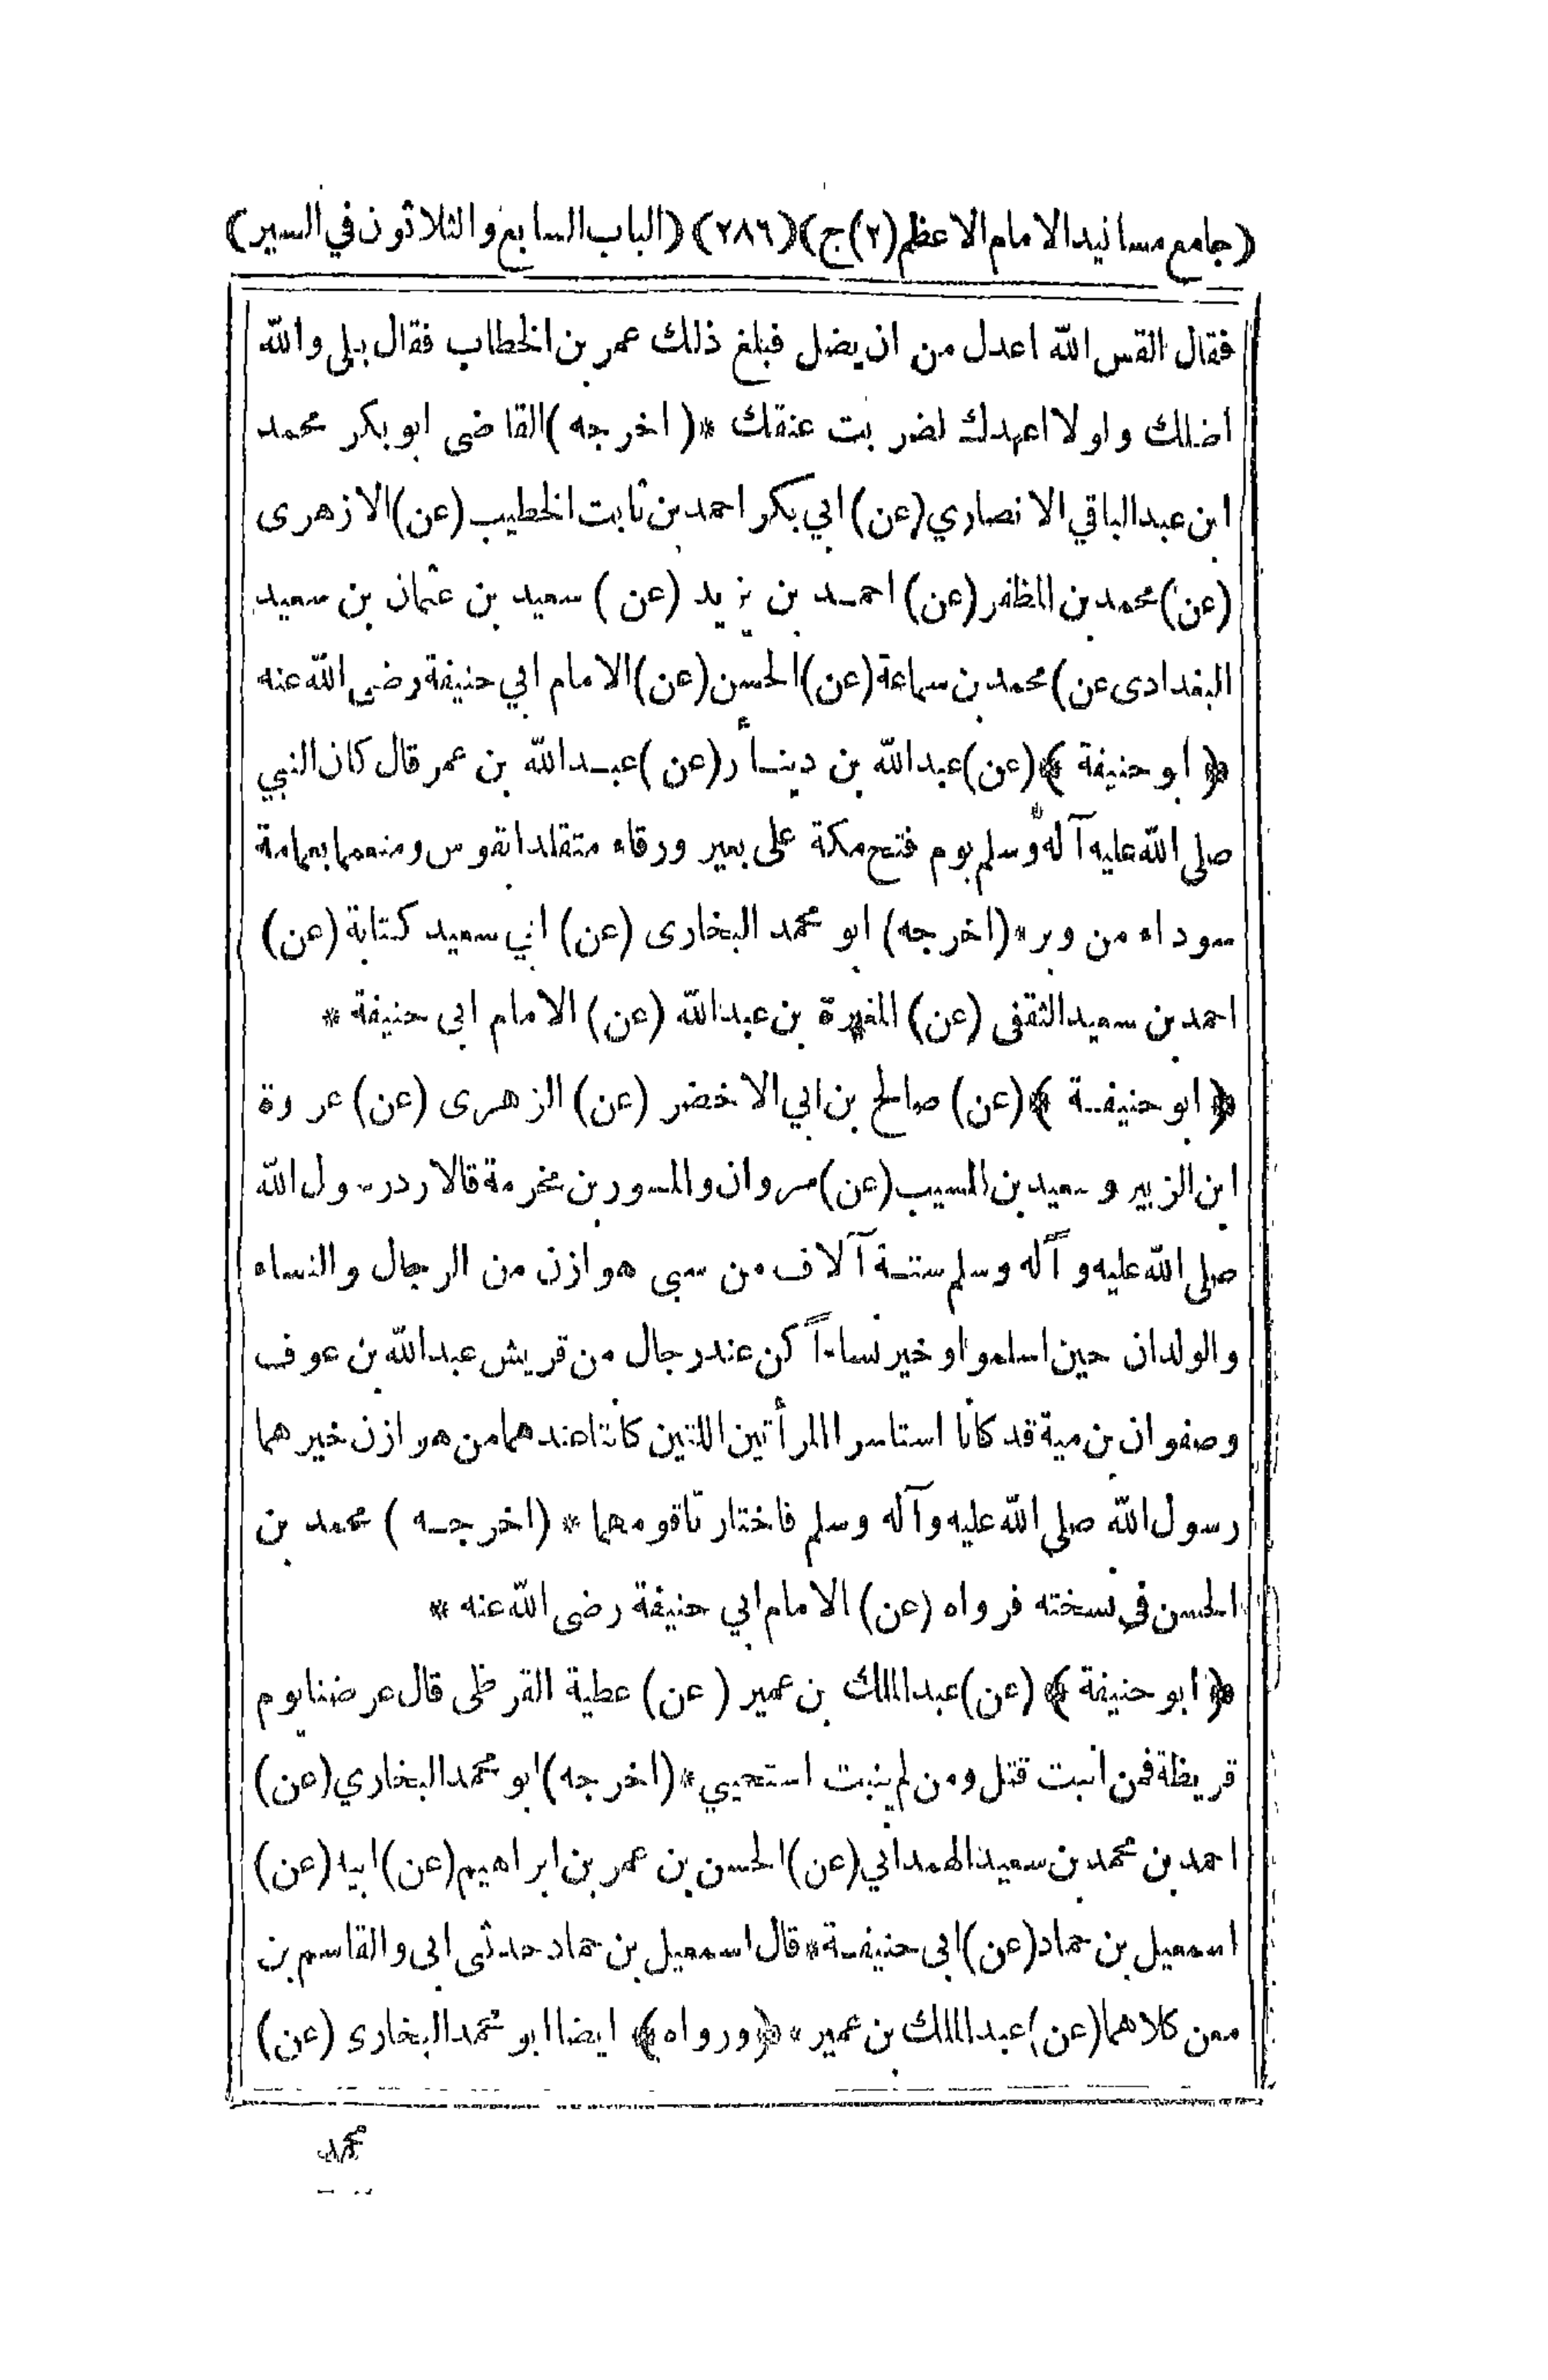 (جامع مسانيد الامام الاعظم (٢) ج) (٢٨٦) (الباب السابع والثلاثون في السير)
فقال القس الله اعدل من ان يضل فبلغ ذلك عمر بن الخطاب فقال بلى والله
اضلك ولو لا اعهدك لضربت عنقك * (اخرجه) القاضى ابو بكر محمد
ابن عبد الباقي الانصاري (عن) ابي بكر احمد بن ثابت الخطيب (عن) الازهرى
(عن) محمد بن المظفر (عن) احمد بن يزيد (عن) سعيد بن عثمان بن سعيد
البغدادى عن) محمد بن سماعة (عن) الحسن (عن) الامام ابي حنيفة رضى الله عنه
﴿ ابو حنيفة ﴾ (عن) عبد الله بن دينار (عن) عبد الله بن عمر قال كان النبي
صلى الله عليه آله وسلم يوم فتح مكة على بعير ورقاء متقلدا بقوس ومتعمما بعمامة
سوداء من وبر * (اخرجه) ابو محمد البخارى (عن) ابي سعيد كتابة (عن)
احمد بن سعيد الثقفى (عن) المغيرة بن عبد الله (عن) الامام ابى حنيفة *
﴿ ابو حنيفة ﴾ (عن) صالح بن ابي الاخضر (عن) الزهرى (عن) عروة
ابن الزبير وسعيد بن المسيب (عن) مروان والمسور بن مخرمة قالا رد رسول الله
صلى الله عليه وآله وسلم ستة آلاف من سبى هوازن من الرجال والنساء
والولدان حين اسلموا وخير نساءاً كن عند رجال من قريش عبد الله بن عوف
وصفوان بن مية قد كانا استاسرا المرأتين اللتين كانتا عندهما من هوازن خيرهما
رسول الله صلى الله عليه وآله وسلم فاختارتا قومهما * (اخرجه) محمد بن
الحسن في نسخته فرواه (عن) الامام ابي حنيفة رضى الله عنه *
﴿ ابو حنيفة ﴾ (عن) عبد الملك بن عمير (عن) عطية القرظى قال عرضنا يوم
قريظة فمن انبت قتل ومن لم ينبت استحيي * (اخرجه) ابو محمد البخاري (عن)
احمد بن محمد بن سعيد الهمداني (عن) الحسن بن عمر بن ابراهيم (عن) ابيه (عن)
اسمعيل بن حماد (عن) ابى حنيفة * قال اسمعيل بن حماد حدثنى ابى والقاسم بن
معن كلاهما (عن) عبد الملك بن عمير * ﴿ ورواه ﴾ ايضا ابو محمد البخارى (عن)
محمد